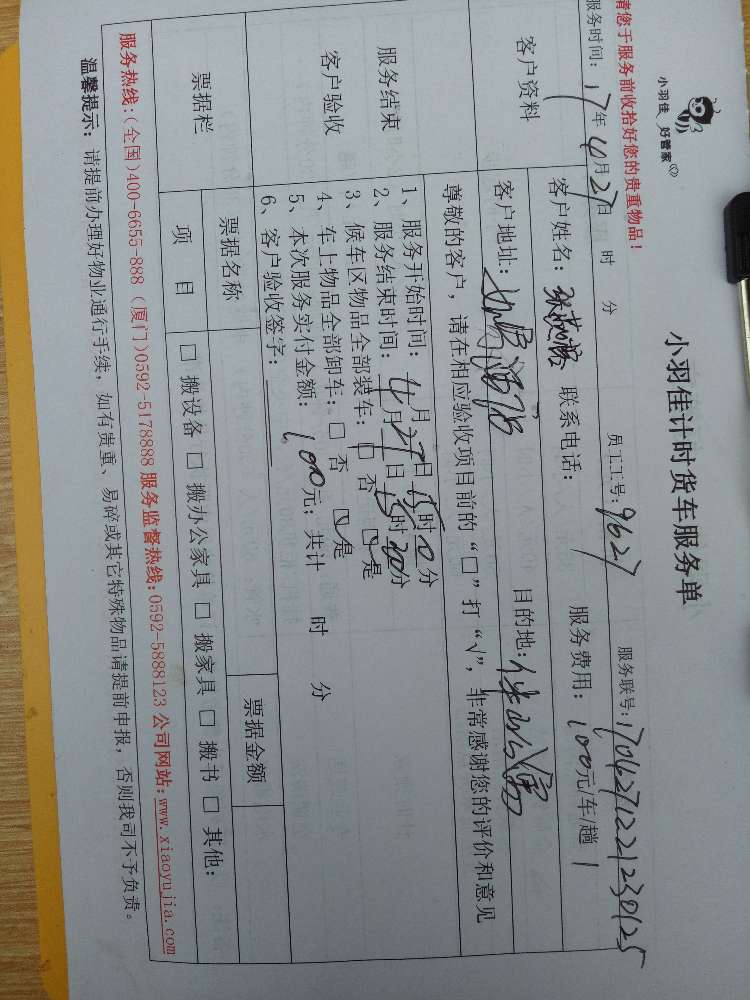 请您于服务前收拾好您的贵重物品！
小羽佳 好管家
小羽佳计时货车服务单
服务时间：17年4月27日 时 分 员工工号：9627 服务联号：
客户资料
客户姓名： 联系电话： 服务费用：100元/车/趟
客户地址： 目的地：
尊敬的客户，请在相应验收项目前的“□”打“√”，非常感谢您的评价和意见
服务结束
客户验收
1、服务开始时间：4月27日15时0分
2、服务结束时间：月日15时20分
3、候车区物品全部装车：□ 否 ☑ 是
4、车上物品全部卸车：□ 否 ☑ 是
5、本次服务实付金额：100元；共计 时 分
6、客户验收签字：
票据栏 票据名称 票据金额
项 目 □ 搬设备 □ 搬办公家具 □ 搬家具 □ 搬书 □ 其他：
服务热线：(全国)400-6655-888 (厦门)0592-5178888 服务监督热线：0592-5888123 公司网站：www.xiaoyujia.com
温馨提示：请提前办理好物业通行手续，如有贵重、易碎或其它特殊物品请提前申报，否则我司不予负责。